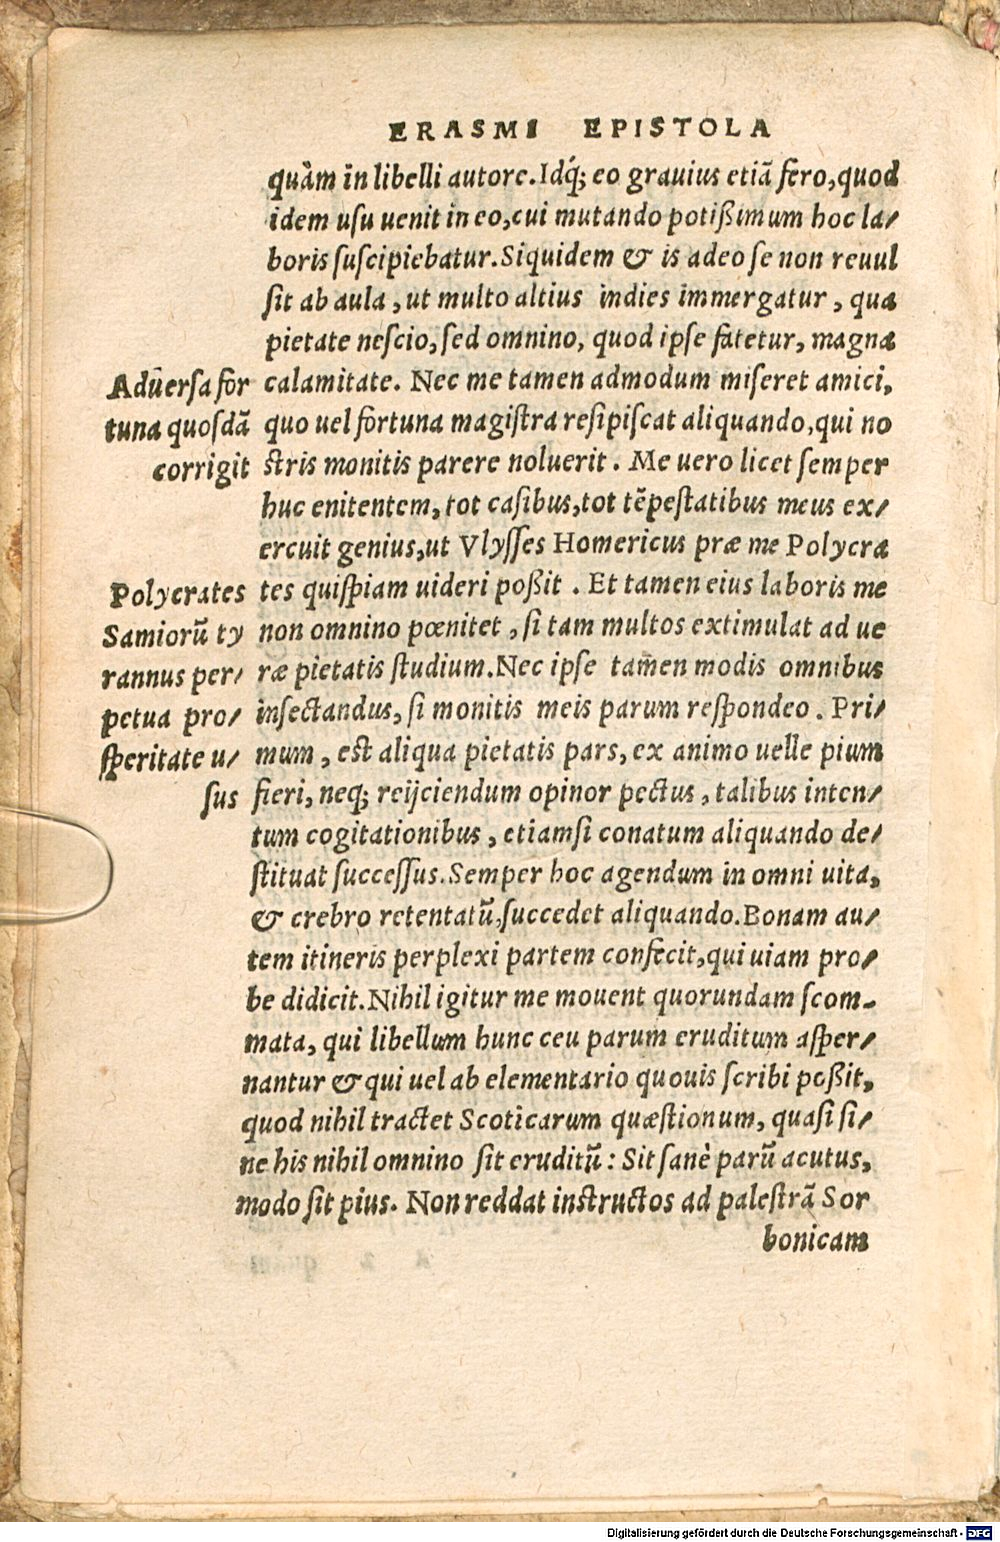 ERASMI EPISTOLA
quàm in libelli autore. Idq́; eo grauius etiã fero, quod
idem uſu uenit in eo, cui mutando potißimum hoc la/
boris ſuſcipiebatur. Siquidem & is adeo ſe non reuul
ſit ab aula, ut multo altius indies immergatur, qua
pietate neſcio, ſed omnino, quod ipſe fatetur, magna
calamitate. Nec me tamen admodum miſeret amici,
quo uel fortuna magiſtra reſipiſcat aliquando, qui no
ſtris monitis parere noluerit. Me uero licet ſemper
huc enitentem, tot caſibus, tot tẽpeſtatibus meus ex/
ercuit genius, ut Vlyſſes Homericus præ me Polycra
tes quiſpiam uideri poßit. Et tamen eius laboris me
non omnino pœnitet, ſi tam multos extimulat ad ue
ræ pietatis ſtudium. Nec ipſe tamen modis omnibus
inſectandus, ſi monitis meis parum reſpondeo. Pri/
mum, eſt aliqua pietatis pars, ex animo uelle pium
fieri, neq; reijciendum opinor pectus, talibus inten/
tum cogitationibus, etiamſi conatum aliquando de/
ſtituat ſucceſſus. Semper hoc agendum in omni uita,
& crebro retentatũ, ſuccedet aliquando. Bonam au/
tem itineris perplexi partem confecit, qui uiam pro/
be didicit. Nihil igitur me mouent quorundam ſcom-
mata, qui libellum hunc ceu parum eruditum aſper/
nantur & qui uel ab elementario quouis ſcribi poßit,
quod nihil tractet Scoticarum quæſtionum, quaſi ſi/
ne his nihil omnino ſit eruditũ: Sit ſanè parũ acutus,
modo ſit pius. Non reddat inſtructos ad paleſtrã Sor
bonicam
Adũerſa for
tuna quoſdã
corrigit
Polycrates
Samiorũ ty
rannus per/
petua pro/
ſperitate u/
ſus
Digitalisierung gefördert durch die Deutsche Forschungsgemeinschaft - DFG